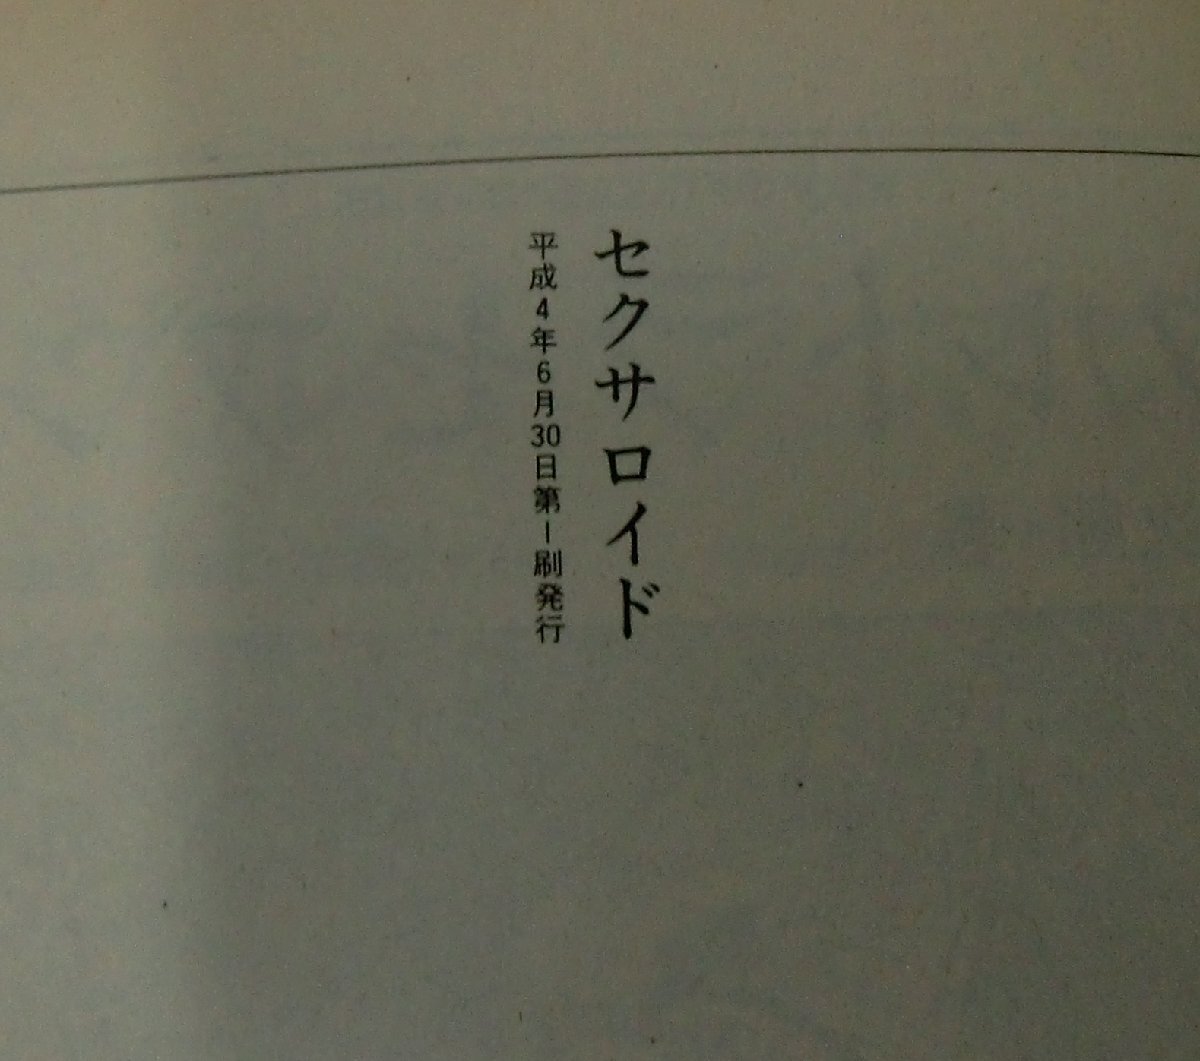 セクサロイド
平成4年6月30日第1刷発行